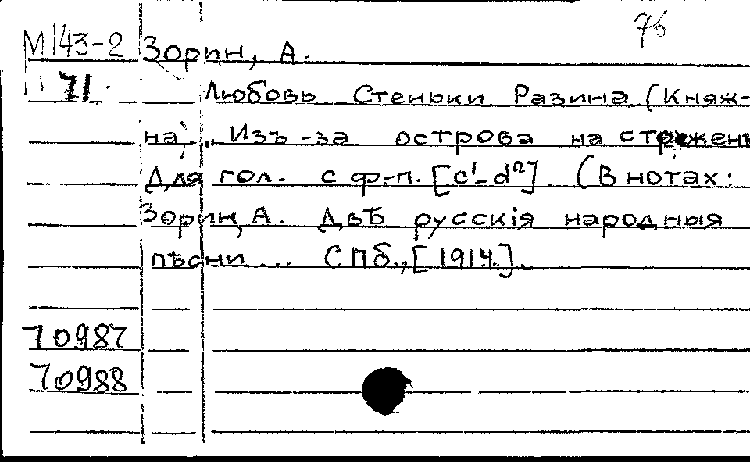 76
М 143-2 Зорин, А.
71. Любовь Стеньки Разина (Княж-
на). Изъ-за острова на стрежень
Для гол. с ф-п. [c¹-d²]. (В нотах:
Зорин, А. Двѣ русскія народныя
пѣсни... СПб., [1914.].
70987
70988